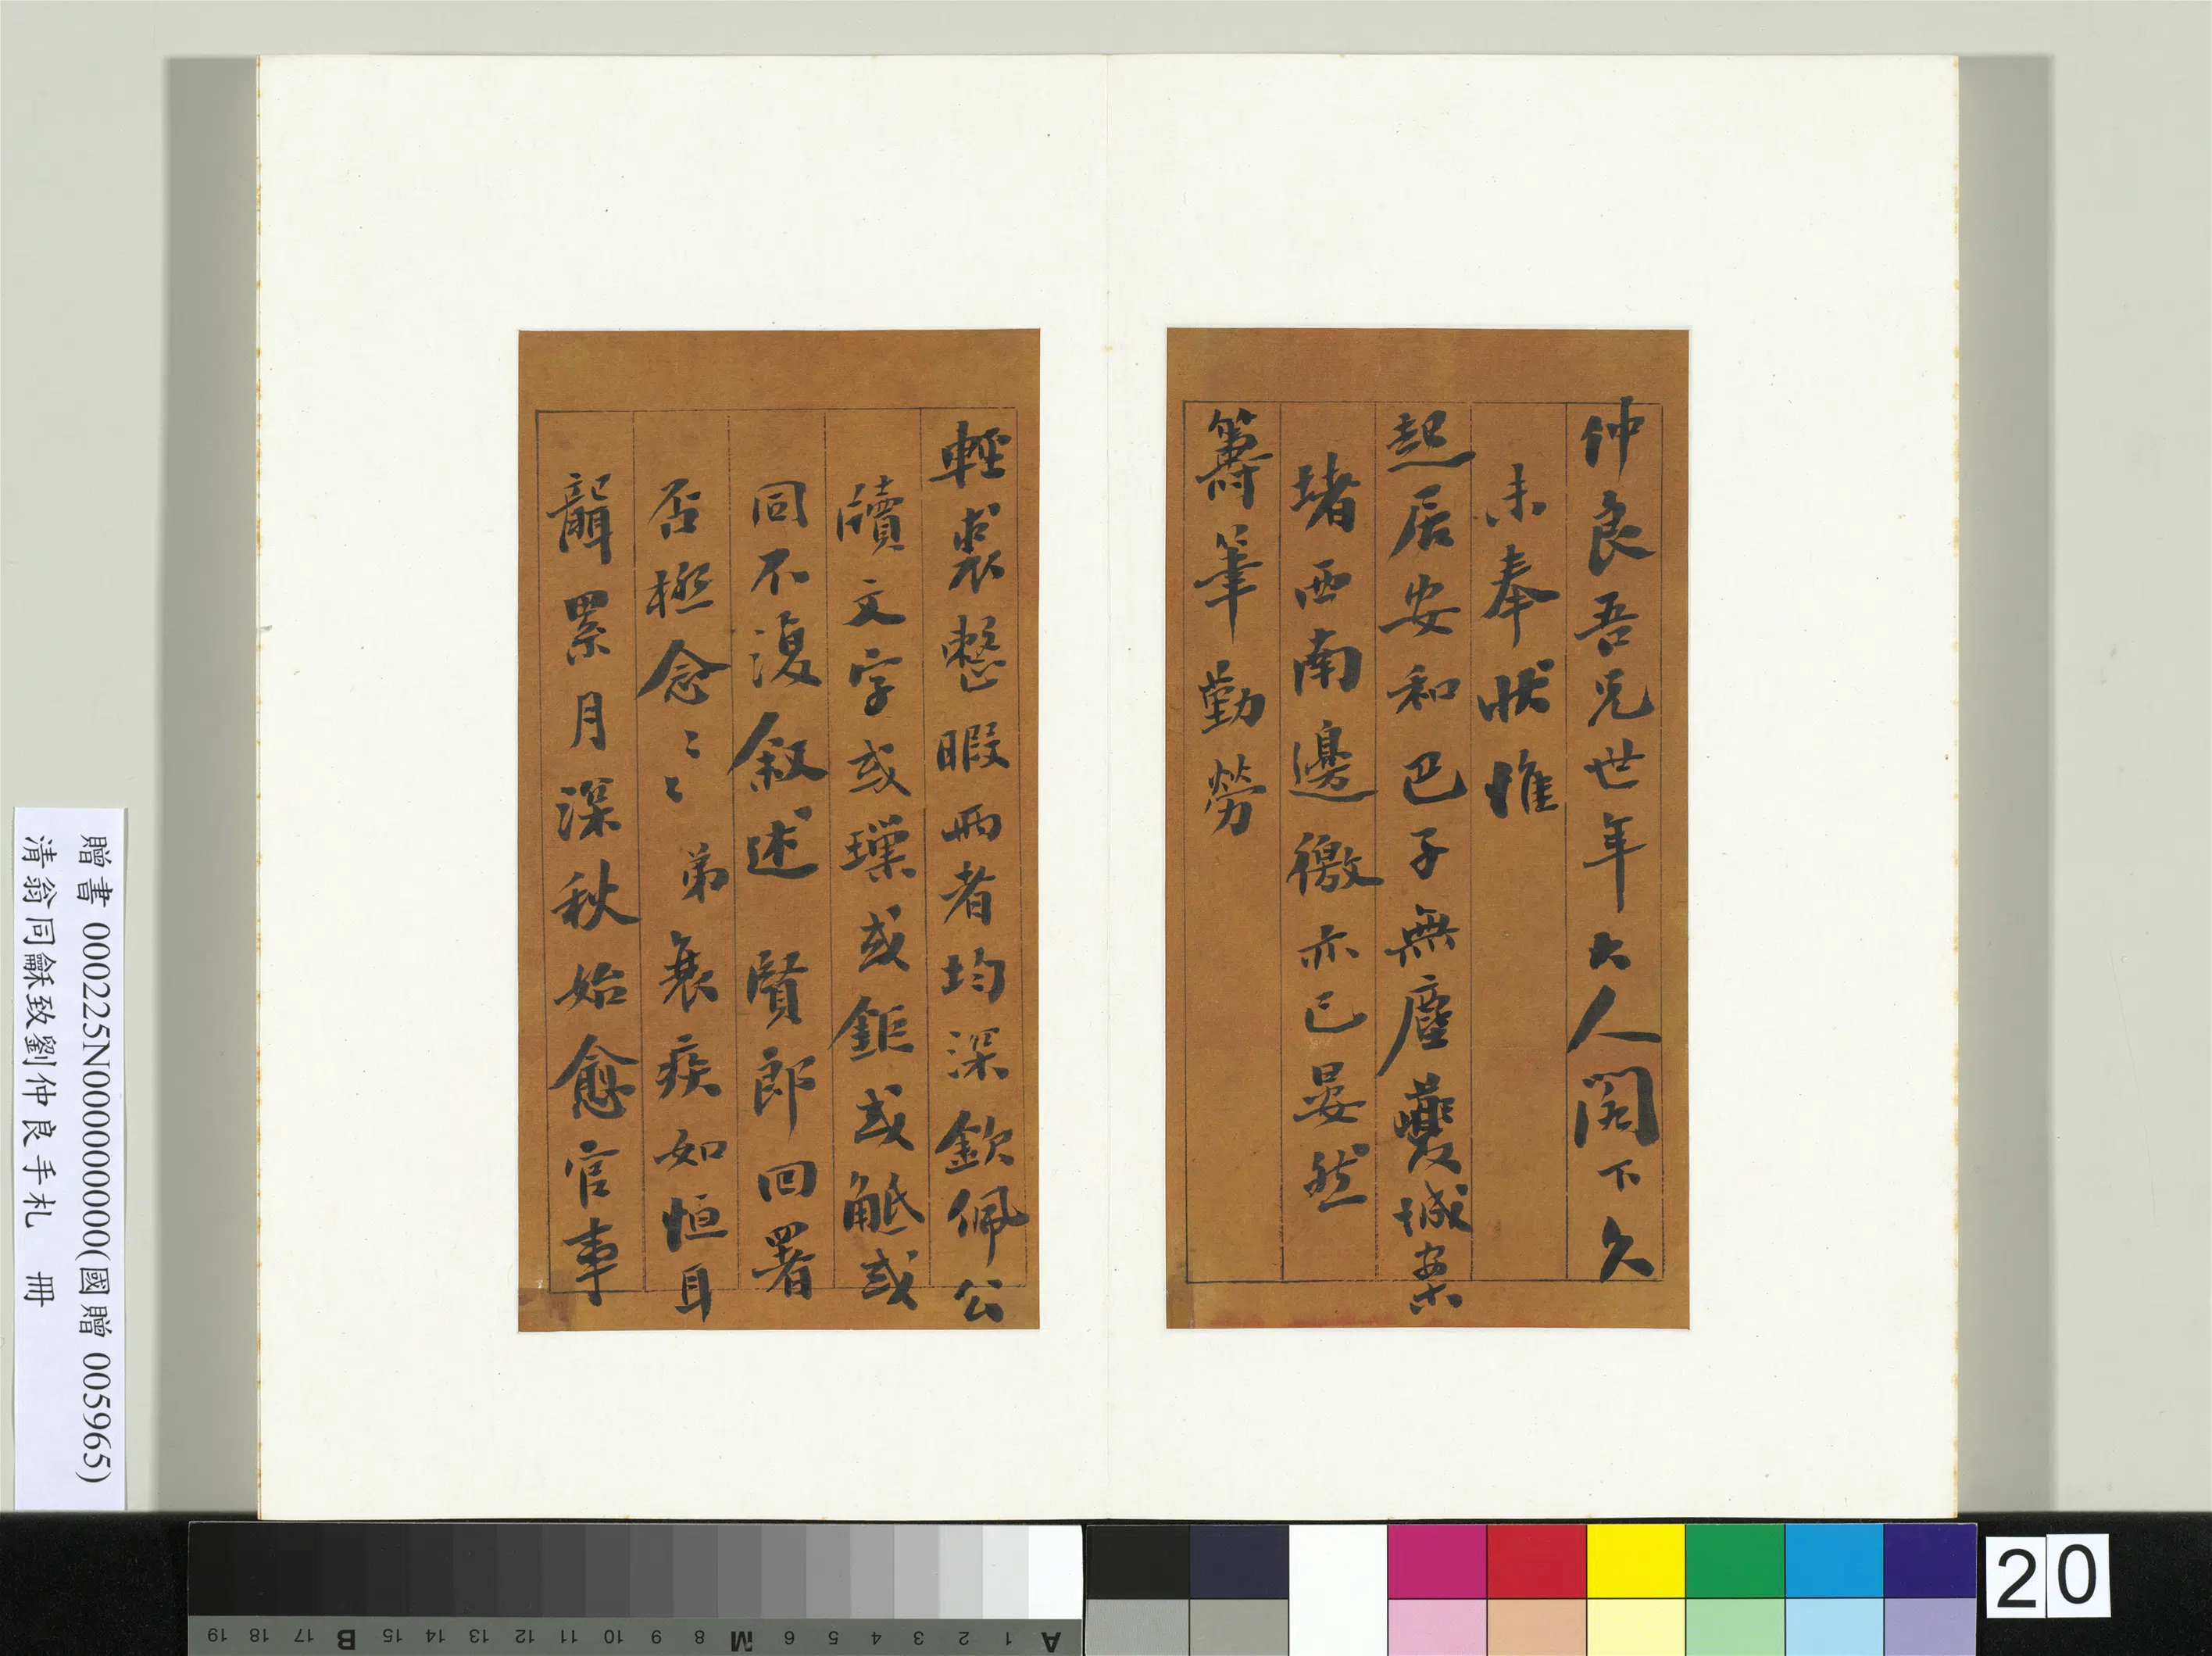 仲良吾兄世年大人閣下久
未奉狀惟
起居安和巴子無塵夔城案
堵西南邊徼亦已晏然
籌筆勤勞
輕裘整暇兩者均深欽佩公
牘文字或璅或鉅或觝或
同不復叙述 賢郎回署
否極念〻〻弟衰疾如恒耳
聾累月深秋始愈官事
贈書 000225N000000000(國贈 005965)
清翁同龢致劉仲良手札 冊
20
A 1 2 3 4 5 6 M 8 9 10 11 12 13 14 15 B 17 18 19